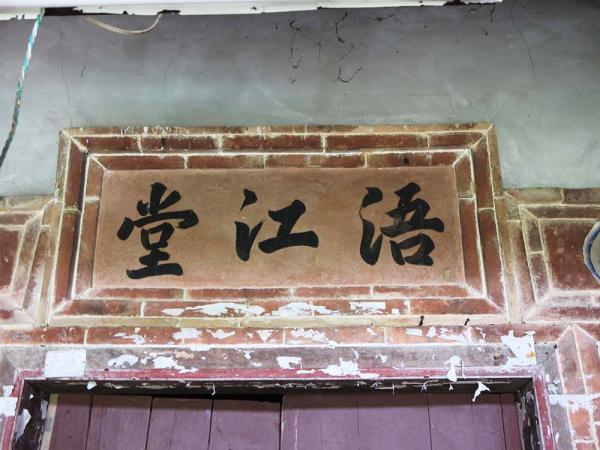 浯江堂